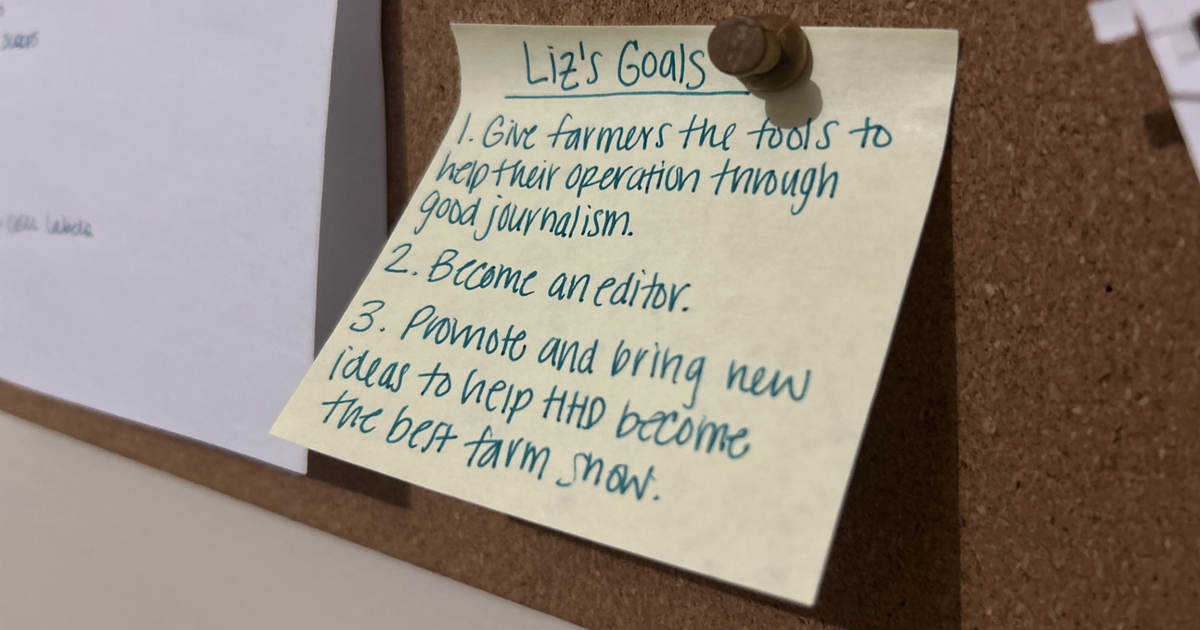 Liz's Goals
1. Give farmers the tools to
help their operation through
good journalism.
2. Become an editor.
3. Promote and bring new
ideas to help HHD become
the best farm show.
labels